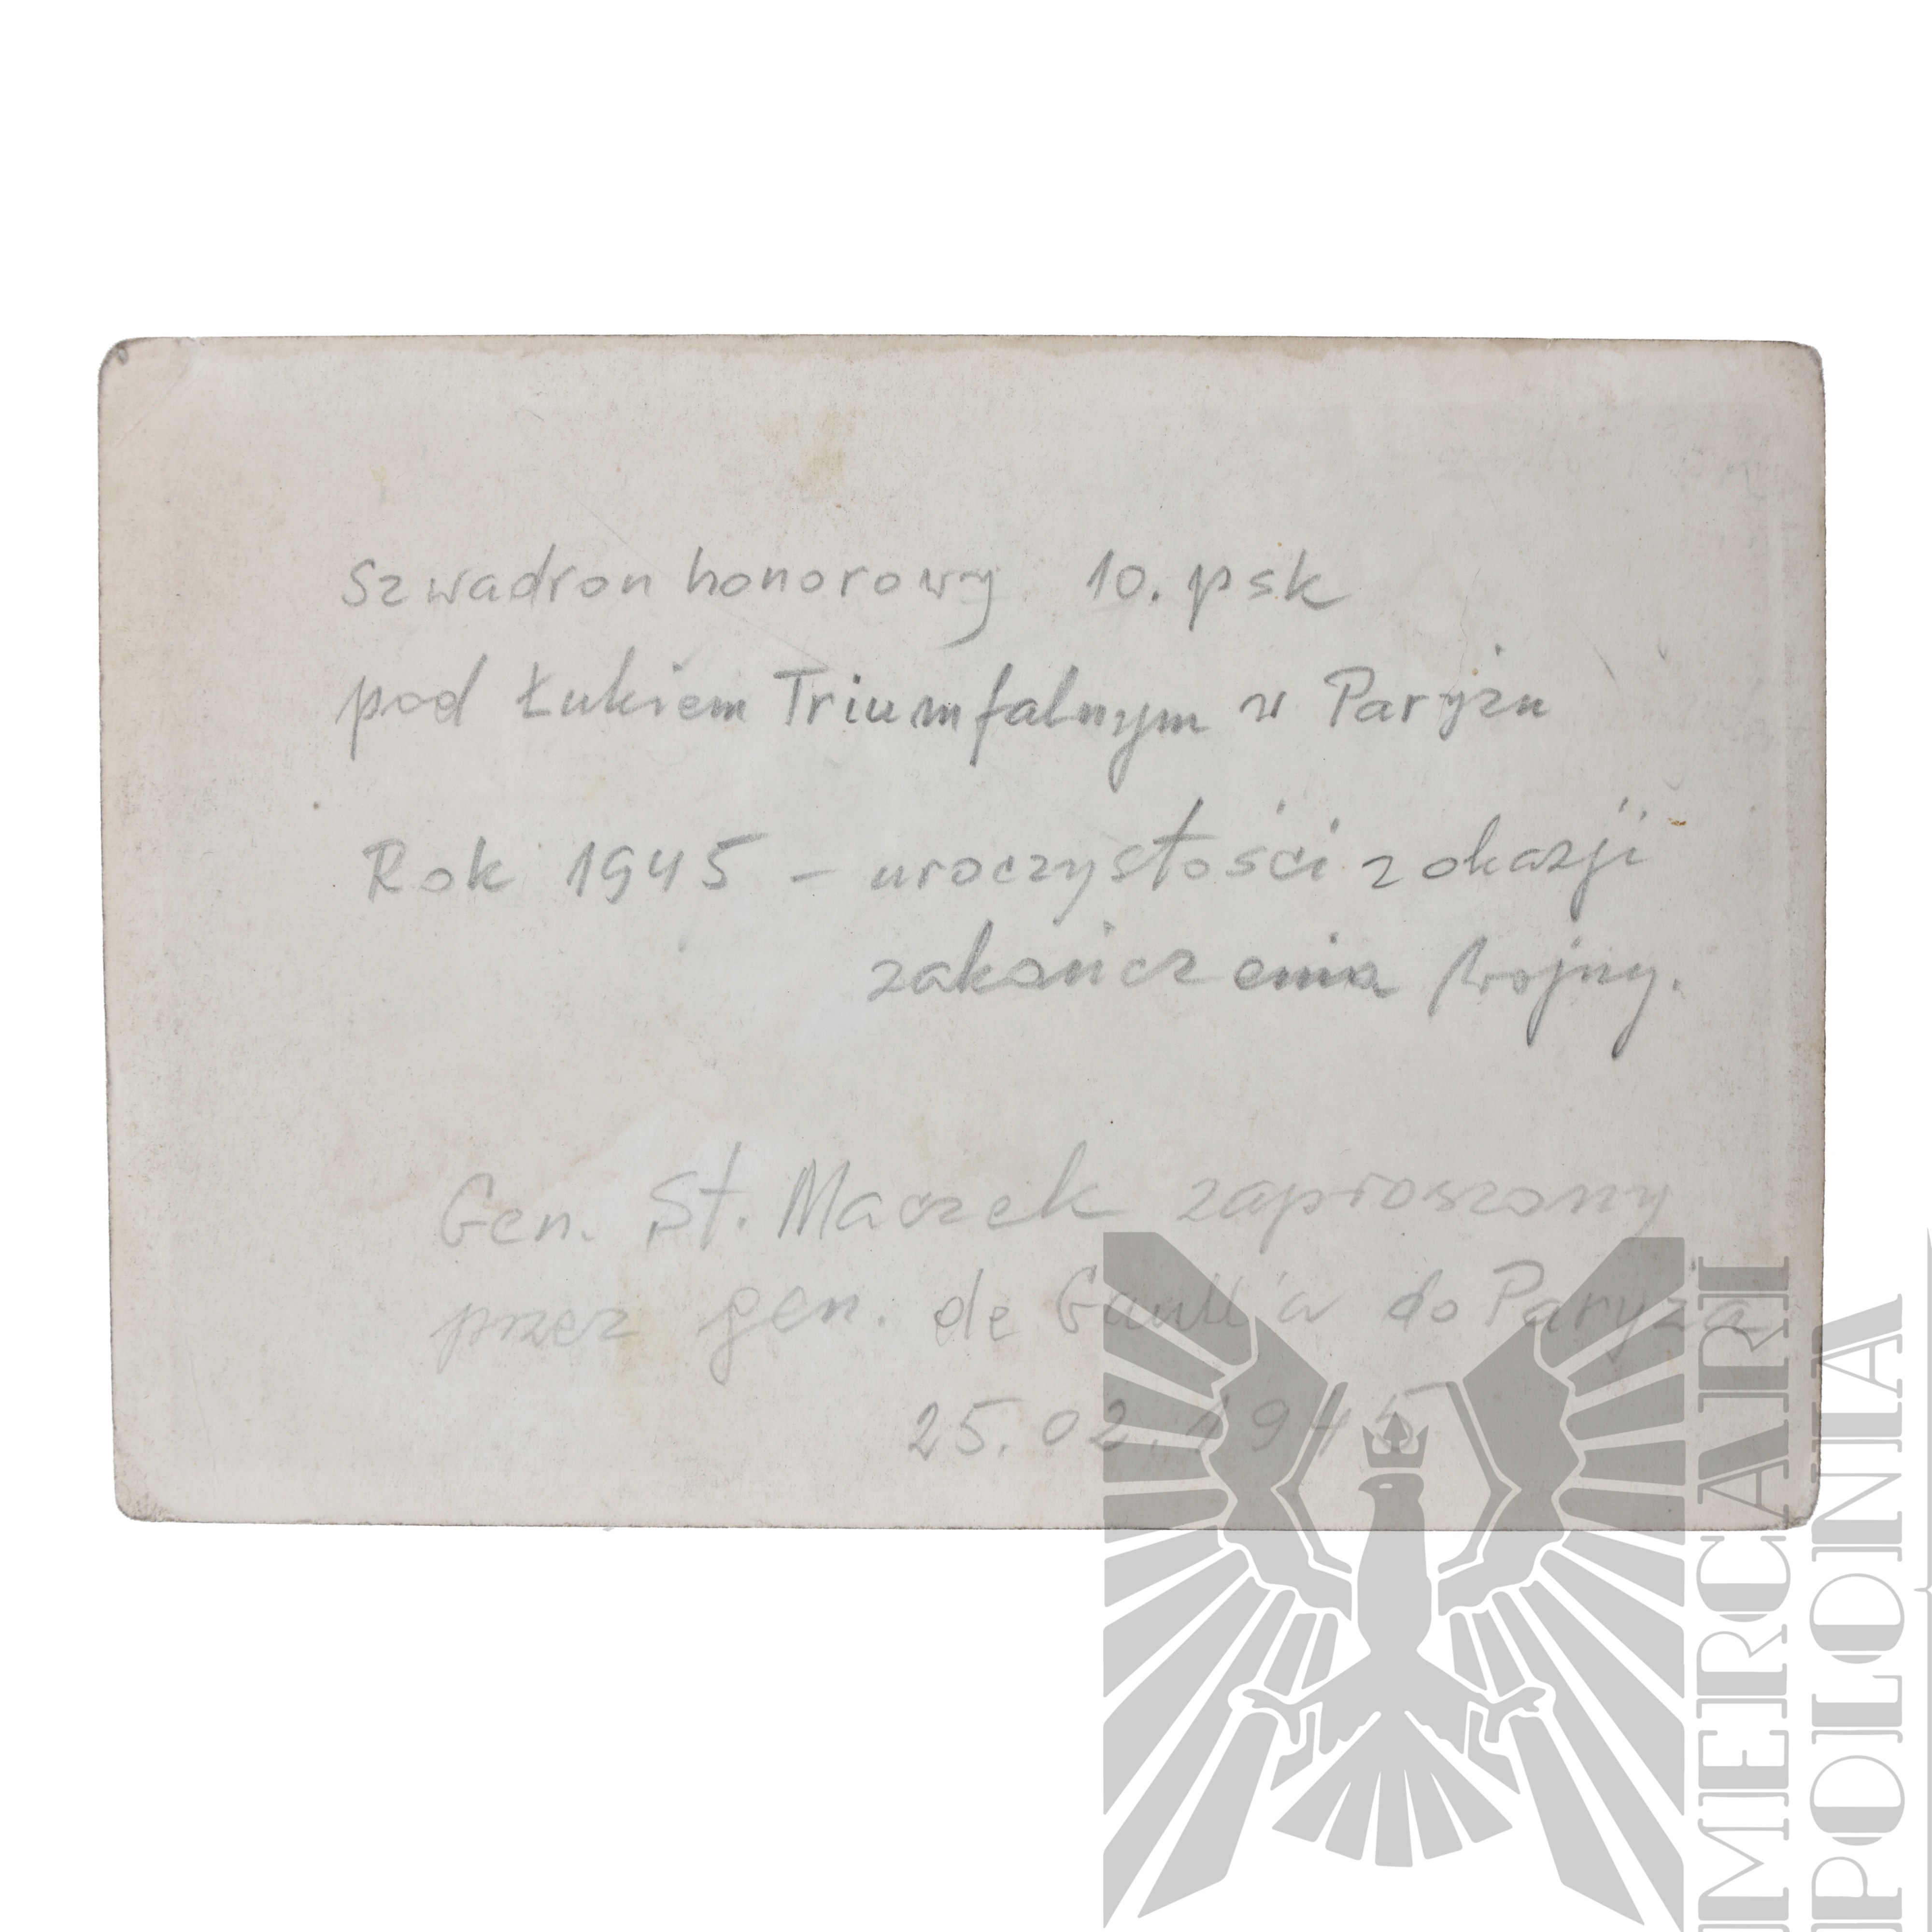 Szwadron honorowy 10. psk
pod Łukiem Triumfalnym w Paryżu
Rok 1945 – uroczystości z okazji
zakończenia Wojny.
Gen. St. Maczek zaproszony
przez gen. de Gaull'a do Paryża
25.02.1945
MERCARI
POLONIA